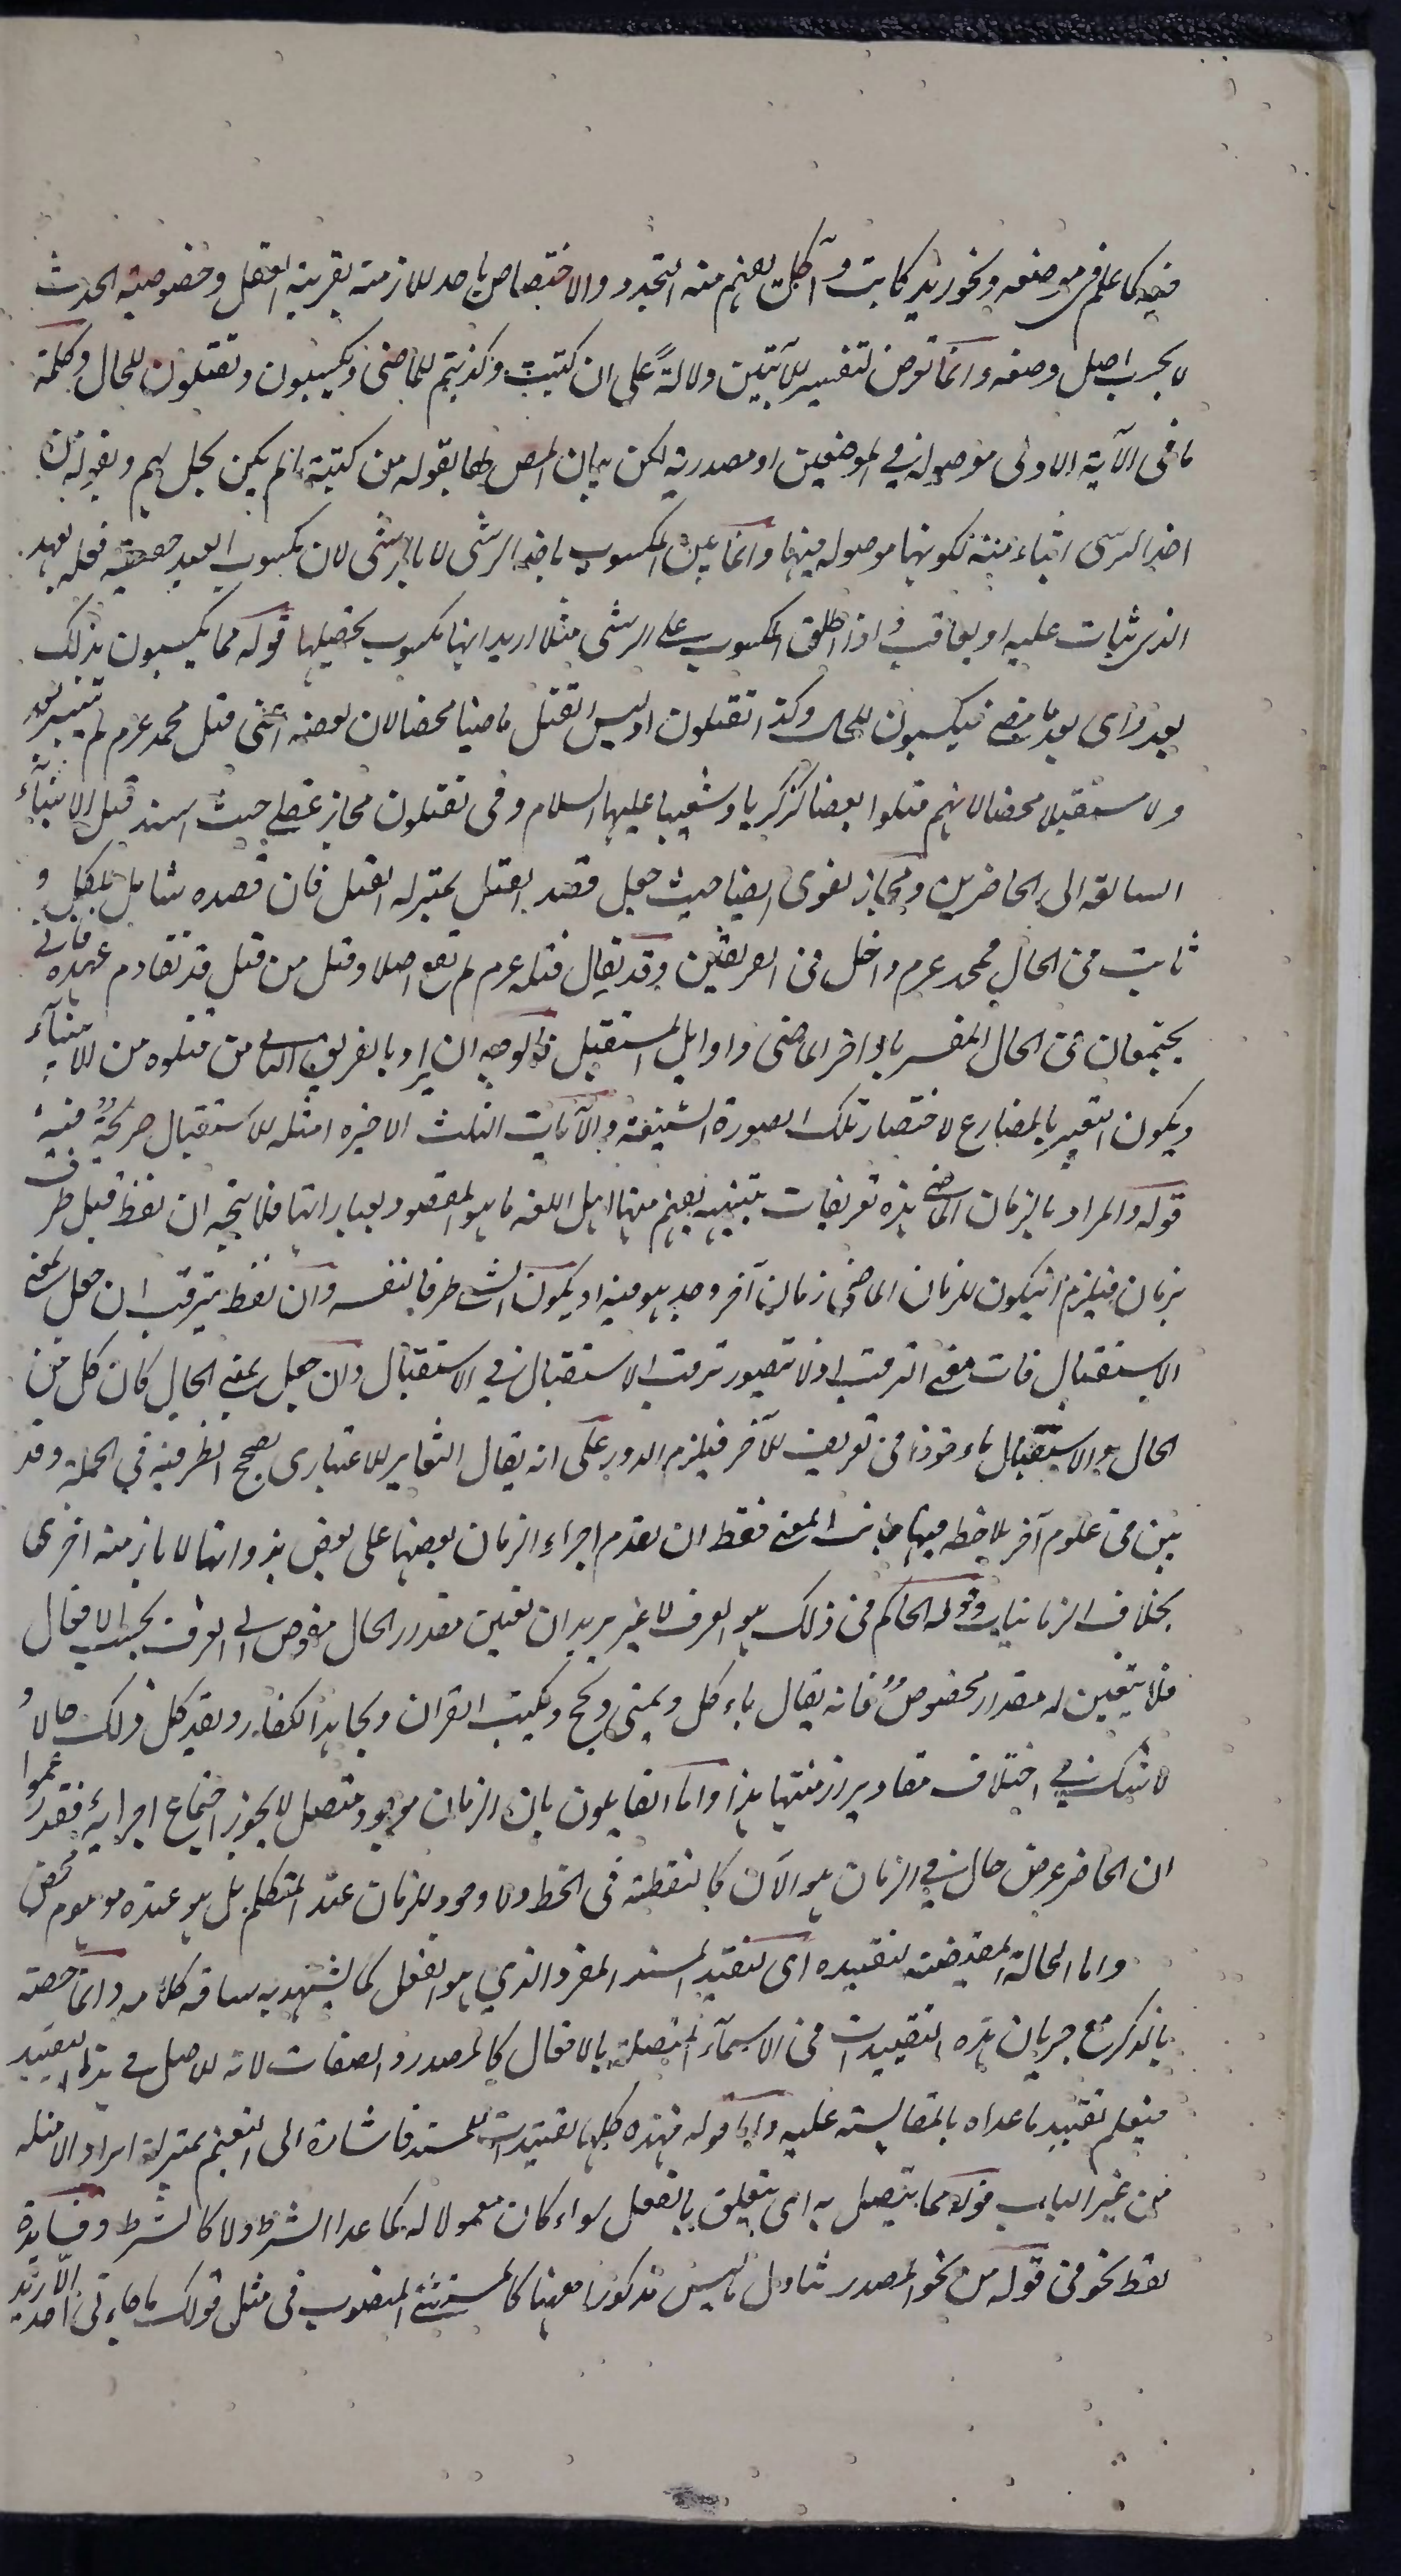 فيه كما علم فى موضعه ونحو زيد كاتب وآكل يفهم منه التجدد والاختصاص باحد الازمنة بقرينة العقل وخصوصية الحدث
لا بحسب اصل وضعه وانما تعرض لتفسير الآيتين دلالة على ان كتبت وكذبتم للماضى ويكسبون وتقتلون للحال وكلمة
ما فى الآية الاولى موصولة فى الموضعين او مصدرية لكن بيان المص لها بقوله من كتبته ما لم يكن يحل لهم وبقوله من
اخذ الرشى انباء منه لكونها موصولة فيهما وانما بين المكسوب باخذ الرشى لا بالرشى لان مكسوب العبد حقيقة فعله بعد
الذى يثاب عليه او يعاقب واذا اطلق المكسوب على الرشى مثلا اريد انها مكسوب تحصيلها قوله مما يكسبون بذلك
بعد اى بعد ما مضى فيكسبون للحال وكذا تقتلون اذ ليس القتل ماضيا محضا لان بعضه اعنى قتل محمد عرم لم تتيسر بعد
ولا مستقبلا محضا لانهم قتلوا بعضا كزكريا وشعيبا عليهما السلام وفى تقتلون مجاز عقلى حيث اسند قتل الانبياء
السالفة الى الحاضرين ومجاز لغوى ايضا حيث جعل قصد القتل بمنزلة القتل فان قصده شامل للكل و
ثابت فى الحال محمد عرم داخل فى الفريقين وقد يقال قتله عرم لم يقع اصلا وقتل من قتل قد تقادم عهده فانى
يجتمعان فى الحال المفسر باواخر الماضى واوايل المستقبل فالوجه ان يراد بالفريق الثانى من قتلوه من الانبياء
ويكون التعبير بالمضارع لاحتضار تلك الصورة الشنيعة والآيات الثلث الاخيرة امثلة للاستقبال صريحة فيه
قوله والمراد بالزمان الماضى هذه تعريفات تنبيه يفهم منها اهل اللغة ما هو المقصود بعباراتها فلا يتجه ان لفظ قبل ظرف
زمان فيلزم ان يكون للزمان الماضى زمان آخر وجد هو فيه او يكون الشىء ظرفا لنفسه وان لفظ يترقب ان جعل بمعنى
الاستقبال فات معنى الترقب اذ لا يتصور ترقب الاستقبال فى الاستقبال وان جعل بمعنى الحال كان كل من
الحال والاستقبال ماءخوذا فى تعريف للآخر فيلزم الدور على انه يقال التغاير الاعتبارى يصحح الظرفية فى الجملة وقد
بين فى علوم آخر يلاحظ فيها جانب المعنى فقط ان تقدم اجزاء الزمان بعضها على بعض بذواتها لا بازمنة اخرى
بخلاف الزمانيات وقوله الحاكم فى ذلك هو العرف لا غير يريد ان تعيين مقدار الحال مفوض الى العرف بحسب الافعال
فلا يتعين له مقدار مخصوص فانه يقال ياءكل ويمشى ويحج ويكتب القران ويجاهد الكفار ويعد كل ذلك حالا و
لا شك فى اختلاف مقادير ازمنتها هذا واما القايلون بان الزمان موجود متصل لا يجوز اجتماع اجزايه فقد زعموا
ان الحاضر عرض حال فى الزمان هو الآن كالنقطة فى الخط ولا وجود للزمان عند المتكلم بل هو عنده موهوم محض
واما الحالة المقتضية لتقييده اى لتقييد المسند المفرد الذى هو الفعل كما يشهد به ساقة كلامه وانما خصه
بالذكر مع جريان هذه التقييدات فى الاسماء المتصلة بالافعال كالمصدر والصفات لانه الاصل فى هذا التقييد
فيعلم تقييد ما عداه بالمقايسة عليه واما قوله فهذه كلها تقييدات للمسند فاشارة الى التعميم بمنزلة ايراد الامثلة
من غير الباب قوله مما يتصل به اى يتعلق بالفعل سواء كان معمولا له كما عدا الشرط ولا كالشرط وفايدة
لفظ نحو فى قوله من نحو المصدر تناول ما ليس مذكورا ههنا كالمستثنى المنصوب فى مثل قولك ما جاءنى احد الا زيدا